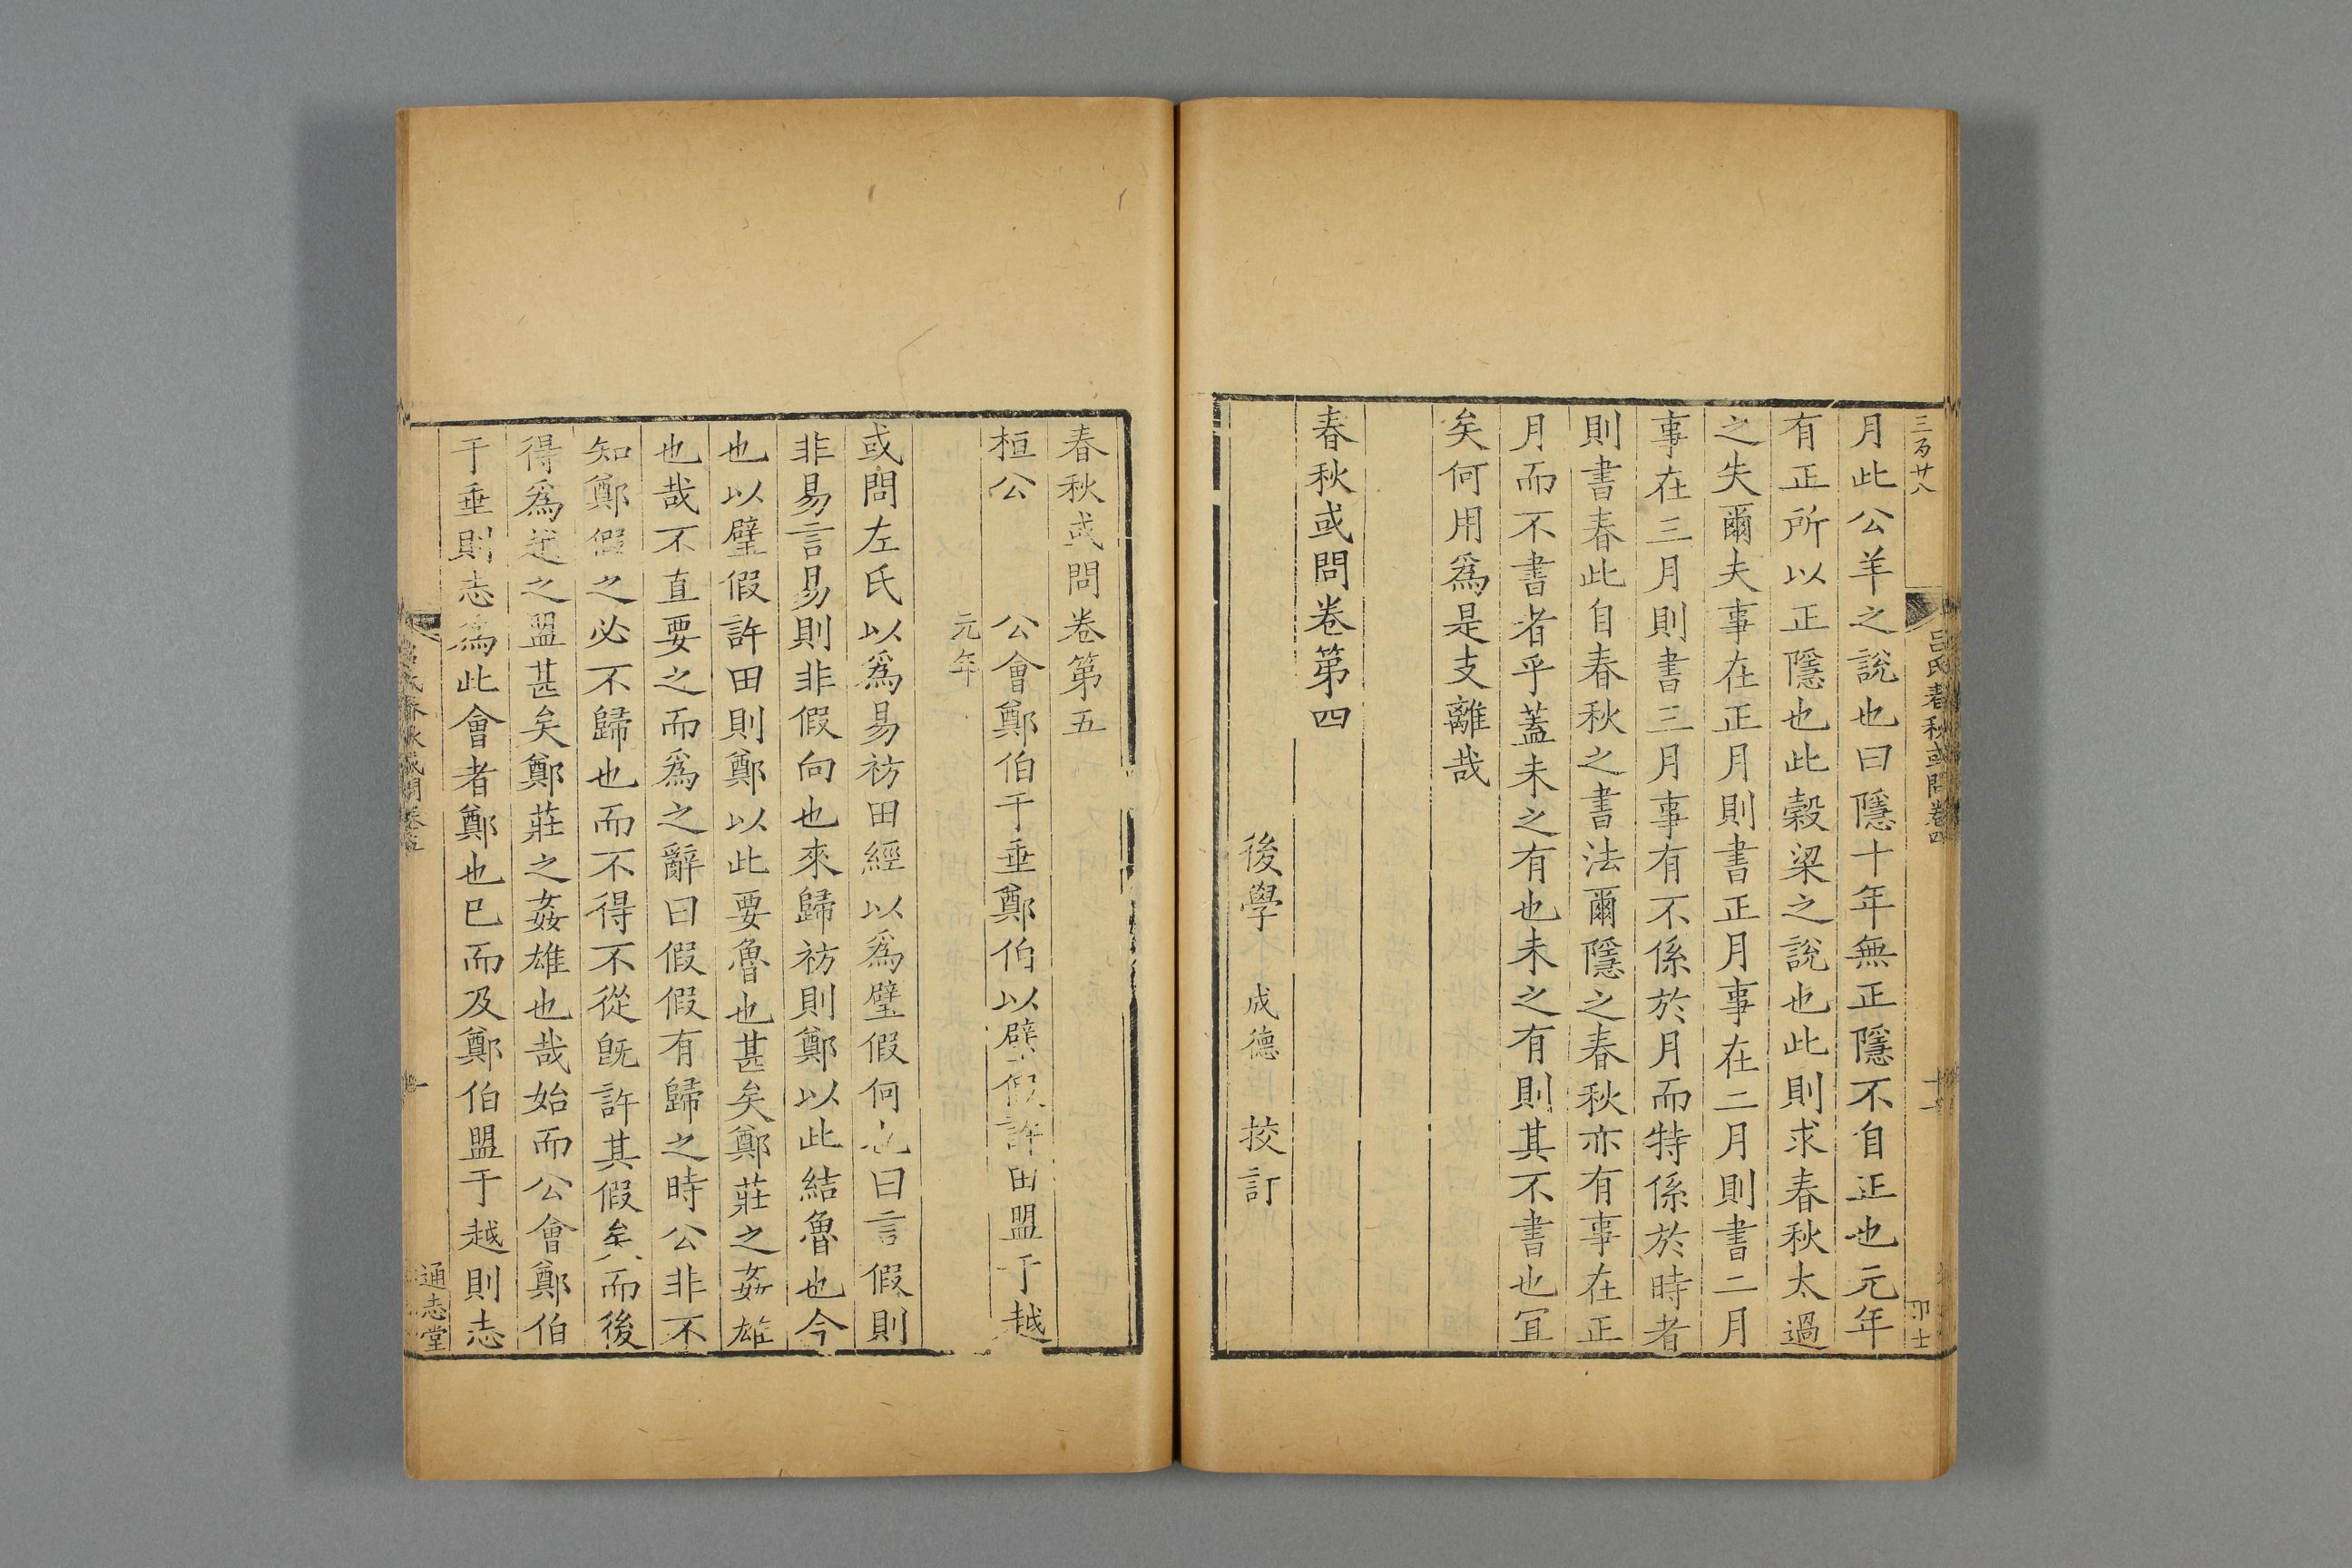 三百廿八
吕氏春秋或問卷四
十一
月此公羊之說也曰隱十年無正隱不自正也元年
有正所以正隱也此穀梁之說也此則求春秋太過
之失爾夫事在正月則書正月事在二月則書二月
事在三月則書三月事有不係於月而特係於時者
則書春此自春秋之書法爾隱之春秋亦有事在正
月而不書者乎蓋未之有也未之有則其不書也冝
矣何用爲是支離哉
春秋或問卷第四
後學 成德 挍訂
春秋或問卷第五
桓公 公會鄭伯于垂鄭伯以璧假許田盟于越
元年
或問左氏以爲易祊田經以爲璧假何也曰言假則
非易言易則非假向也來歸祊則鄭以此結魯也今
也以璧假許田則鄭以此要魯也甚矣鄭莊之姦雄
也哉不直要之而爲之辭曰假假有歸之時公非不
知鄭假之必不歸也而不得不從旣許其假矣而後
得爲越之盟甚矣鄭莊之姦雄也哉始而公會鄭伯
于垂則志爲此會者鄭也巳而及鄭伯盟于越則志
吕氏春秋或問卷五
一
通志堂